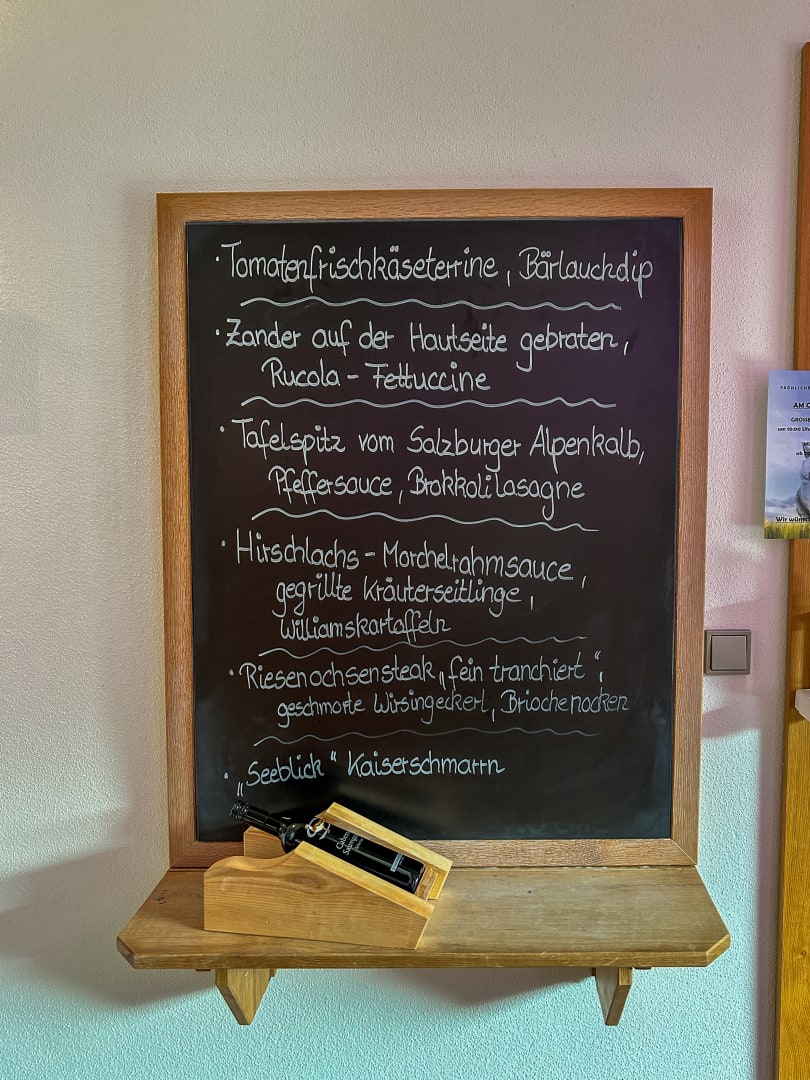 · Tomatenfrischkäseterrine, Bärlauchdip
· Zander auf der Hautseite gebraten,
Rucola - Fettuccine
· Tafelspitz vom Salzburger Alpenkalb,
Pfeffersauce, Brokkolilasagne
· Hirschlachs - Morchelrahmsauce,
gegrillte Kräuterseitlinge,
Williamskartoffeln
· Riesenochsensteak „fein tranchiert",
geschmorte Wirsingeckerl, Briochenocken
· „Seeblick" Kaiserschmarrn
Cabernet
FRÖHLICHE
AM O
GROSSE
um 10:00 Uhr
ab
Wir wünsc